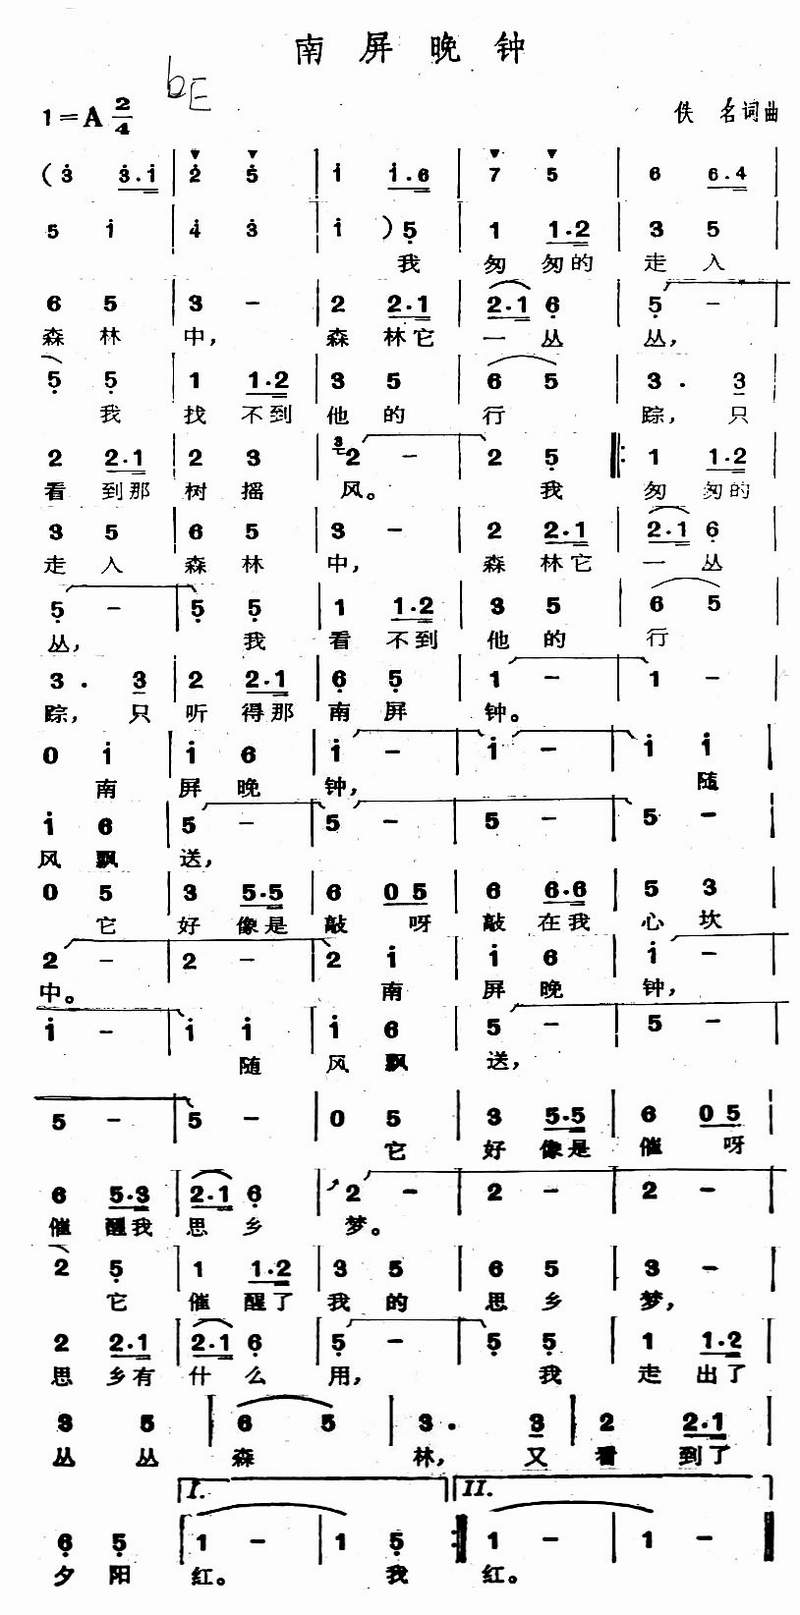 南屏晚钟
bE
1=A 2/4
佚名词曲
(3 3.1 | 2 5 | 1 1.6 | 7 5 | 6 6.4 |
5 1 | 4 3 | 1 ) 5 | 1 1.2 | 3 5 |
我 匆 匆的 走 入
6 5 | 3 - | 2 2.1 | 2.1 6 | 5 - |
森 林 中, 森 林它 一 丛 丛,
5 5 | 1 1.2 | 3 5 | 6 5 | 3 . 3 |
我 找 不到 他 的 行 踪, 只
2 2.1 | 2 3 | 3 2 - | 2 5 |: 1 1.2 |
看 到那 树 摇 风。 我 匆 匆的
3 5 | 6 5 | 3 - | 2 2.1 | 2.1 6 |
走 入 森 林 中, 森 林它 一 丛
5 - | 5 5 | 1 1.2 | 3 5 | 6 5 |
丛, 我 看 不到 他 的 行
3 . 3 | 2 2.1 | 6 5 | 1 - | 1 - |
踪, 只 听 得那 南 屏 钟。
0 1 | 1 6 | 1 - | 1 - | 1 1 |
南 屏 晚 钟, 随
1 6 | 5 - | 5 - | 5 - | 5 - |
风 飘 送,
0 5 | 3 5.5 | 6 0 5 | 6 6.6 | 5 3 |
它 好 像是 敲 呀 敲 在我 心 坎
2 - | 2 - | 2 1 | 1 6 | 1 - |
中。 南 屏 晚 钟,
1 - | 1 1 | 1 6 | 5 - | 5 - |
随 风 飘 送,
5 - | 5 - | 0 5 | 3 5.5 | 6 0 5 |
它 好 像是 催 呀
6 5.3 | 2.1 6 | 2 - | 2 - | 2 - |
催 醒我 思 乡 梦。
2 5 | 1 1.2 | 3 5 | 6 5 | 3 - |
它 催 醒了 我 的 思 乡 梦,
2 2.1 | 2.1 6 | 5 - | 5 5 | 1 1.2 |
思 乡有 什 么 用, 我 走 出了
3 5 | 6 5 | 3 . 3 | 2 2.1 |
丛 丛 森 林, 又 看 到了
I. II.
6 5 | 1 - | 1 5 :| 1 - | 1 - |
夕 阳 红。 我 红。